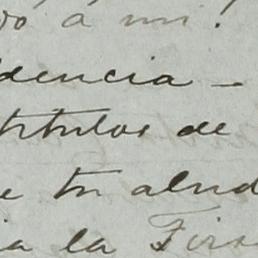 a mi!
dencia -
titulos de
e tu alud
ia la Firs